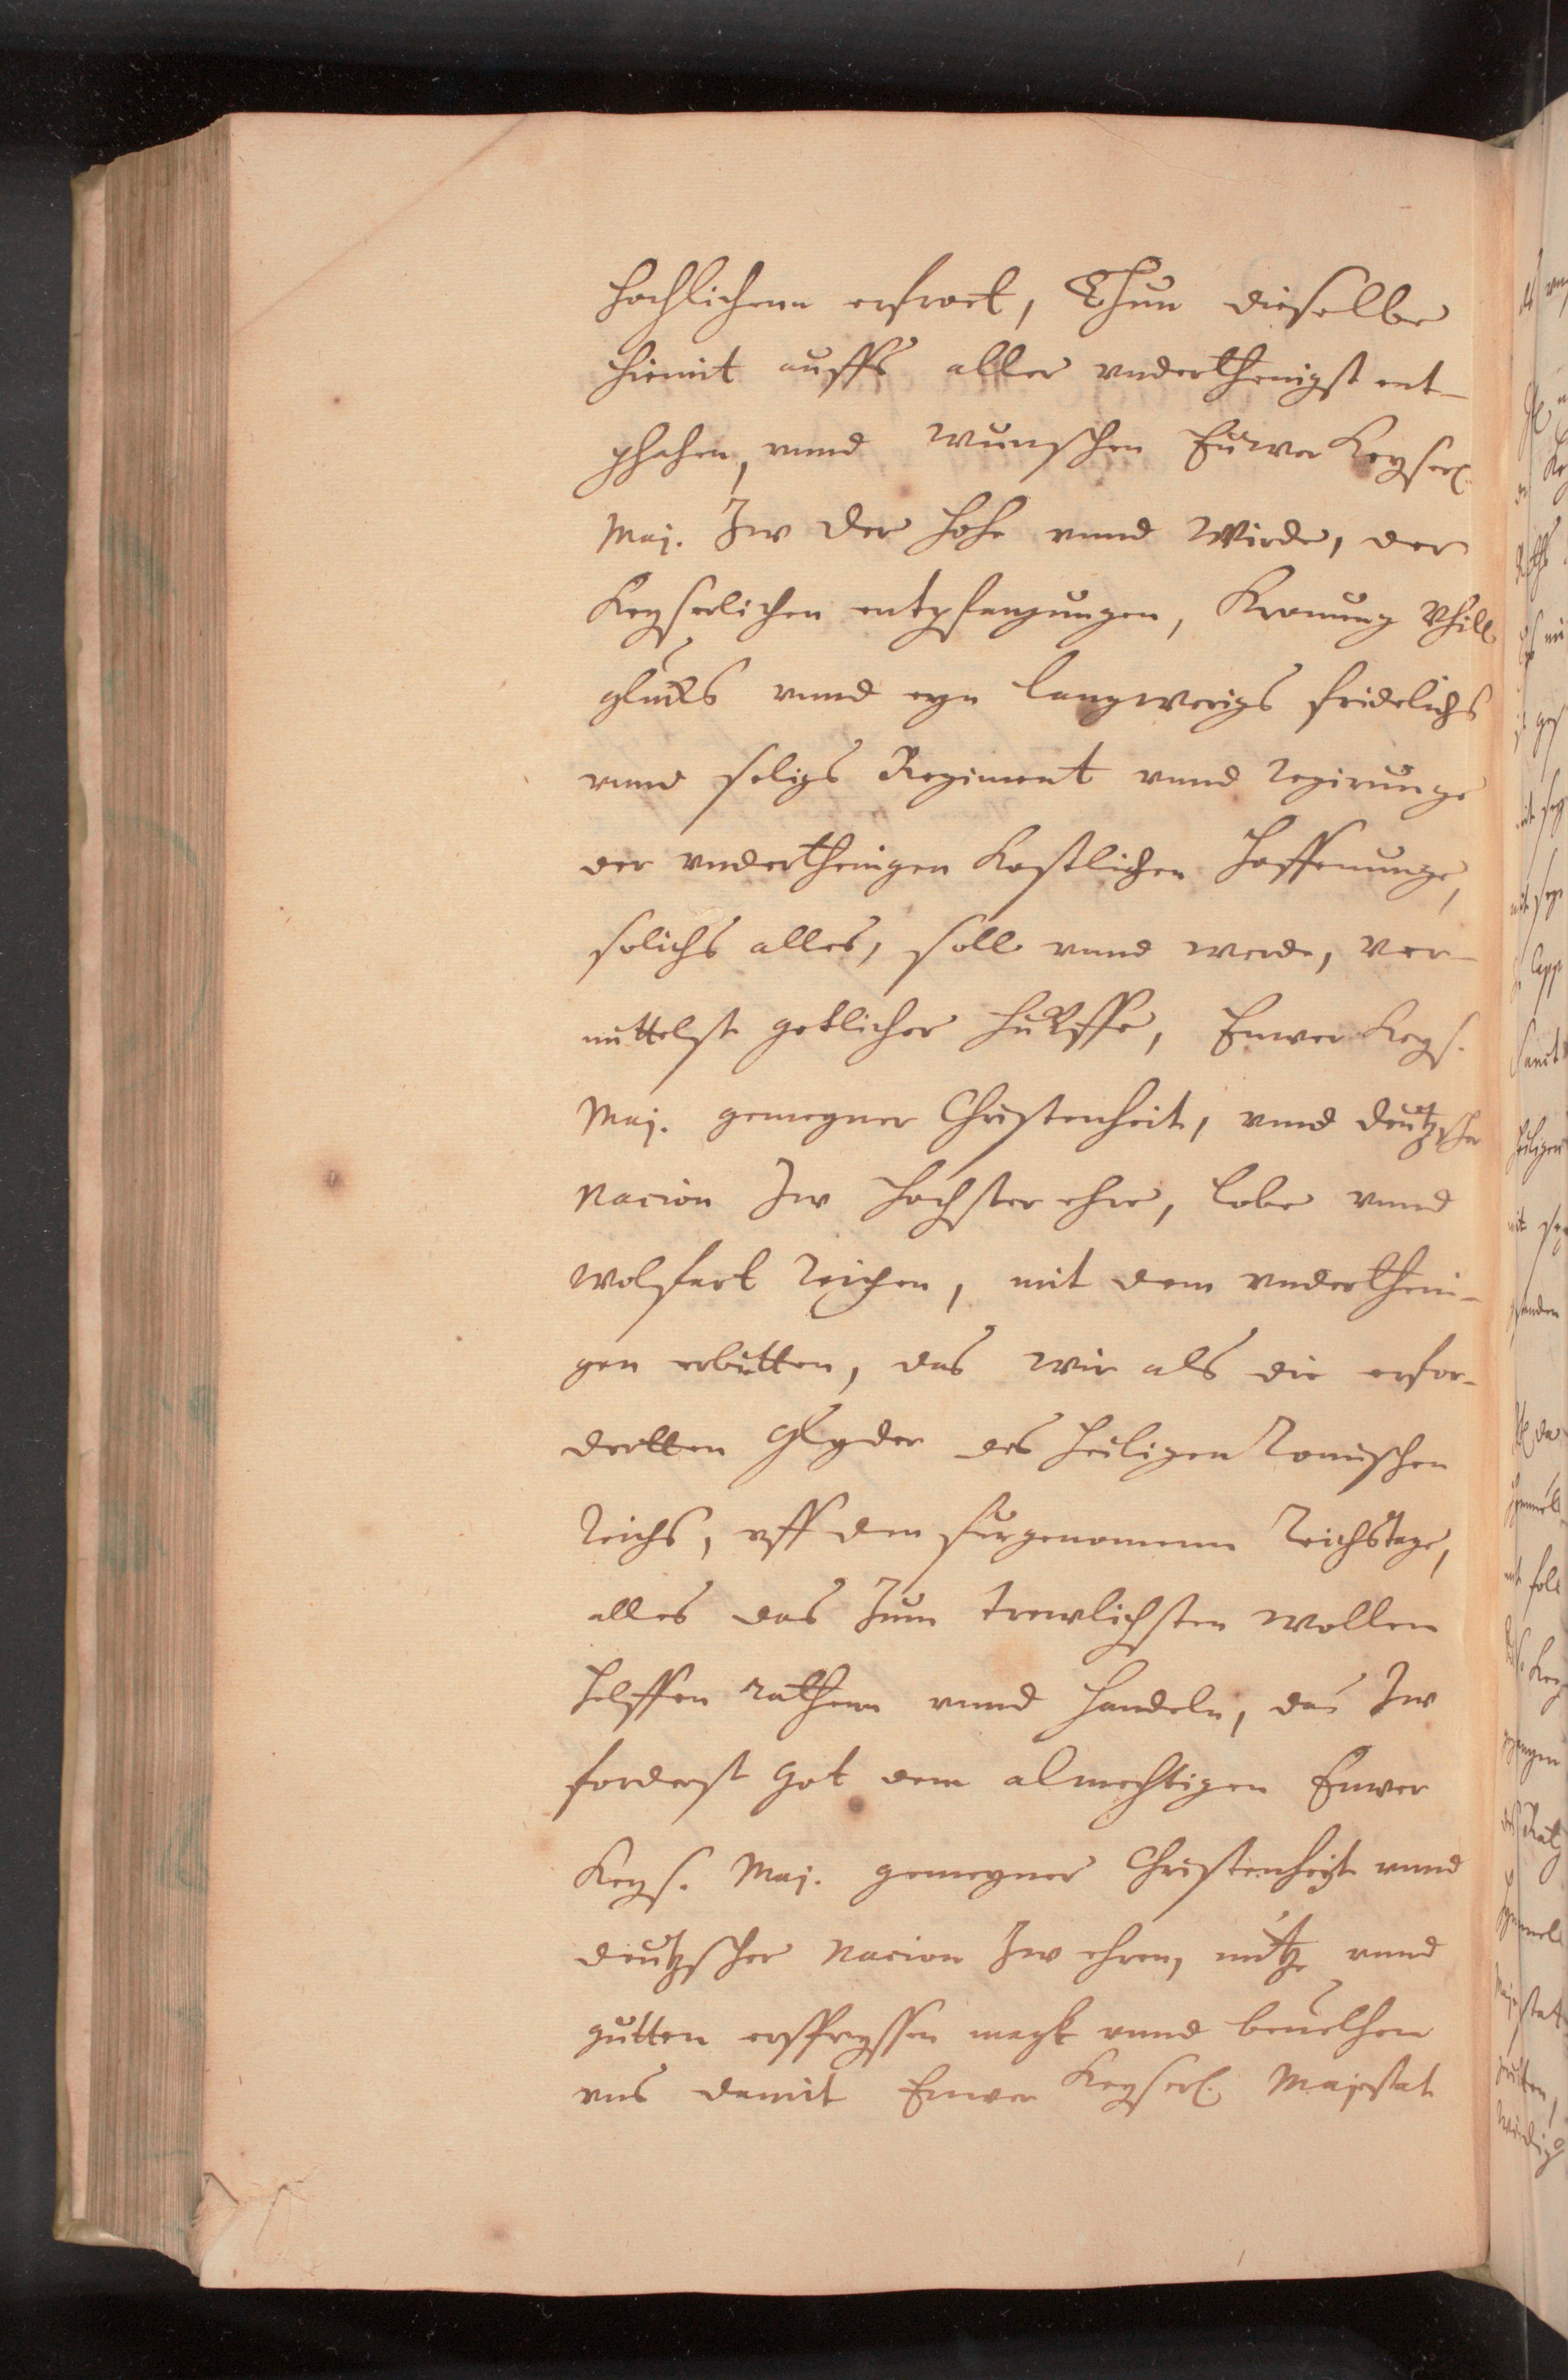 hochlichenn erfrost, Thun dieselbe
hiemit auffs aller vnderthenigst ent-
phahen, vnnd wunschen Euwer Keyserl.
Maj. Zw der hohe vnnd Wirde, der
Keyserlichen entpfangungen, Kronung Vhill
glucks vnnd eyn langwerigs fridelichs
vnnd seligs Regiment vnnd regirunge
der vnderthenigen Kostlichen Hoffenunge,
solichs alles, soll vnnd werde, ver-
mittelst gotlicher hulffe, Ewer Keys.
Maj. gemeyner Christenheit, vnnd deutzscher
Nacion Zw hochster ehre, lobe vnnd
wolfart reichen, mit dem vndertheni-
gen erbitten, das wir als die erfor-
derten Glyder des heiligen Romischen
Reichs, vff dem furgenomenn Reichstage,
alles das Zum trewlichsten wollen
helffen rathenn vnnd handeln, das Zw
forderst Got dem almechtigen Ewer
Keys. Maj. gemeyner Christenheyt vnnd
deutzscher Nacion Zw ehren, nutze vnnd
gutten ersspryssen magk vnnd beuelhen
vns damit Ewer Keyserl. Majestat